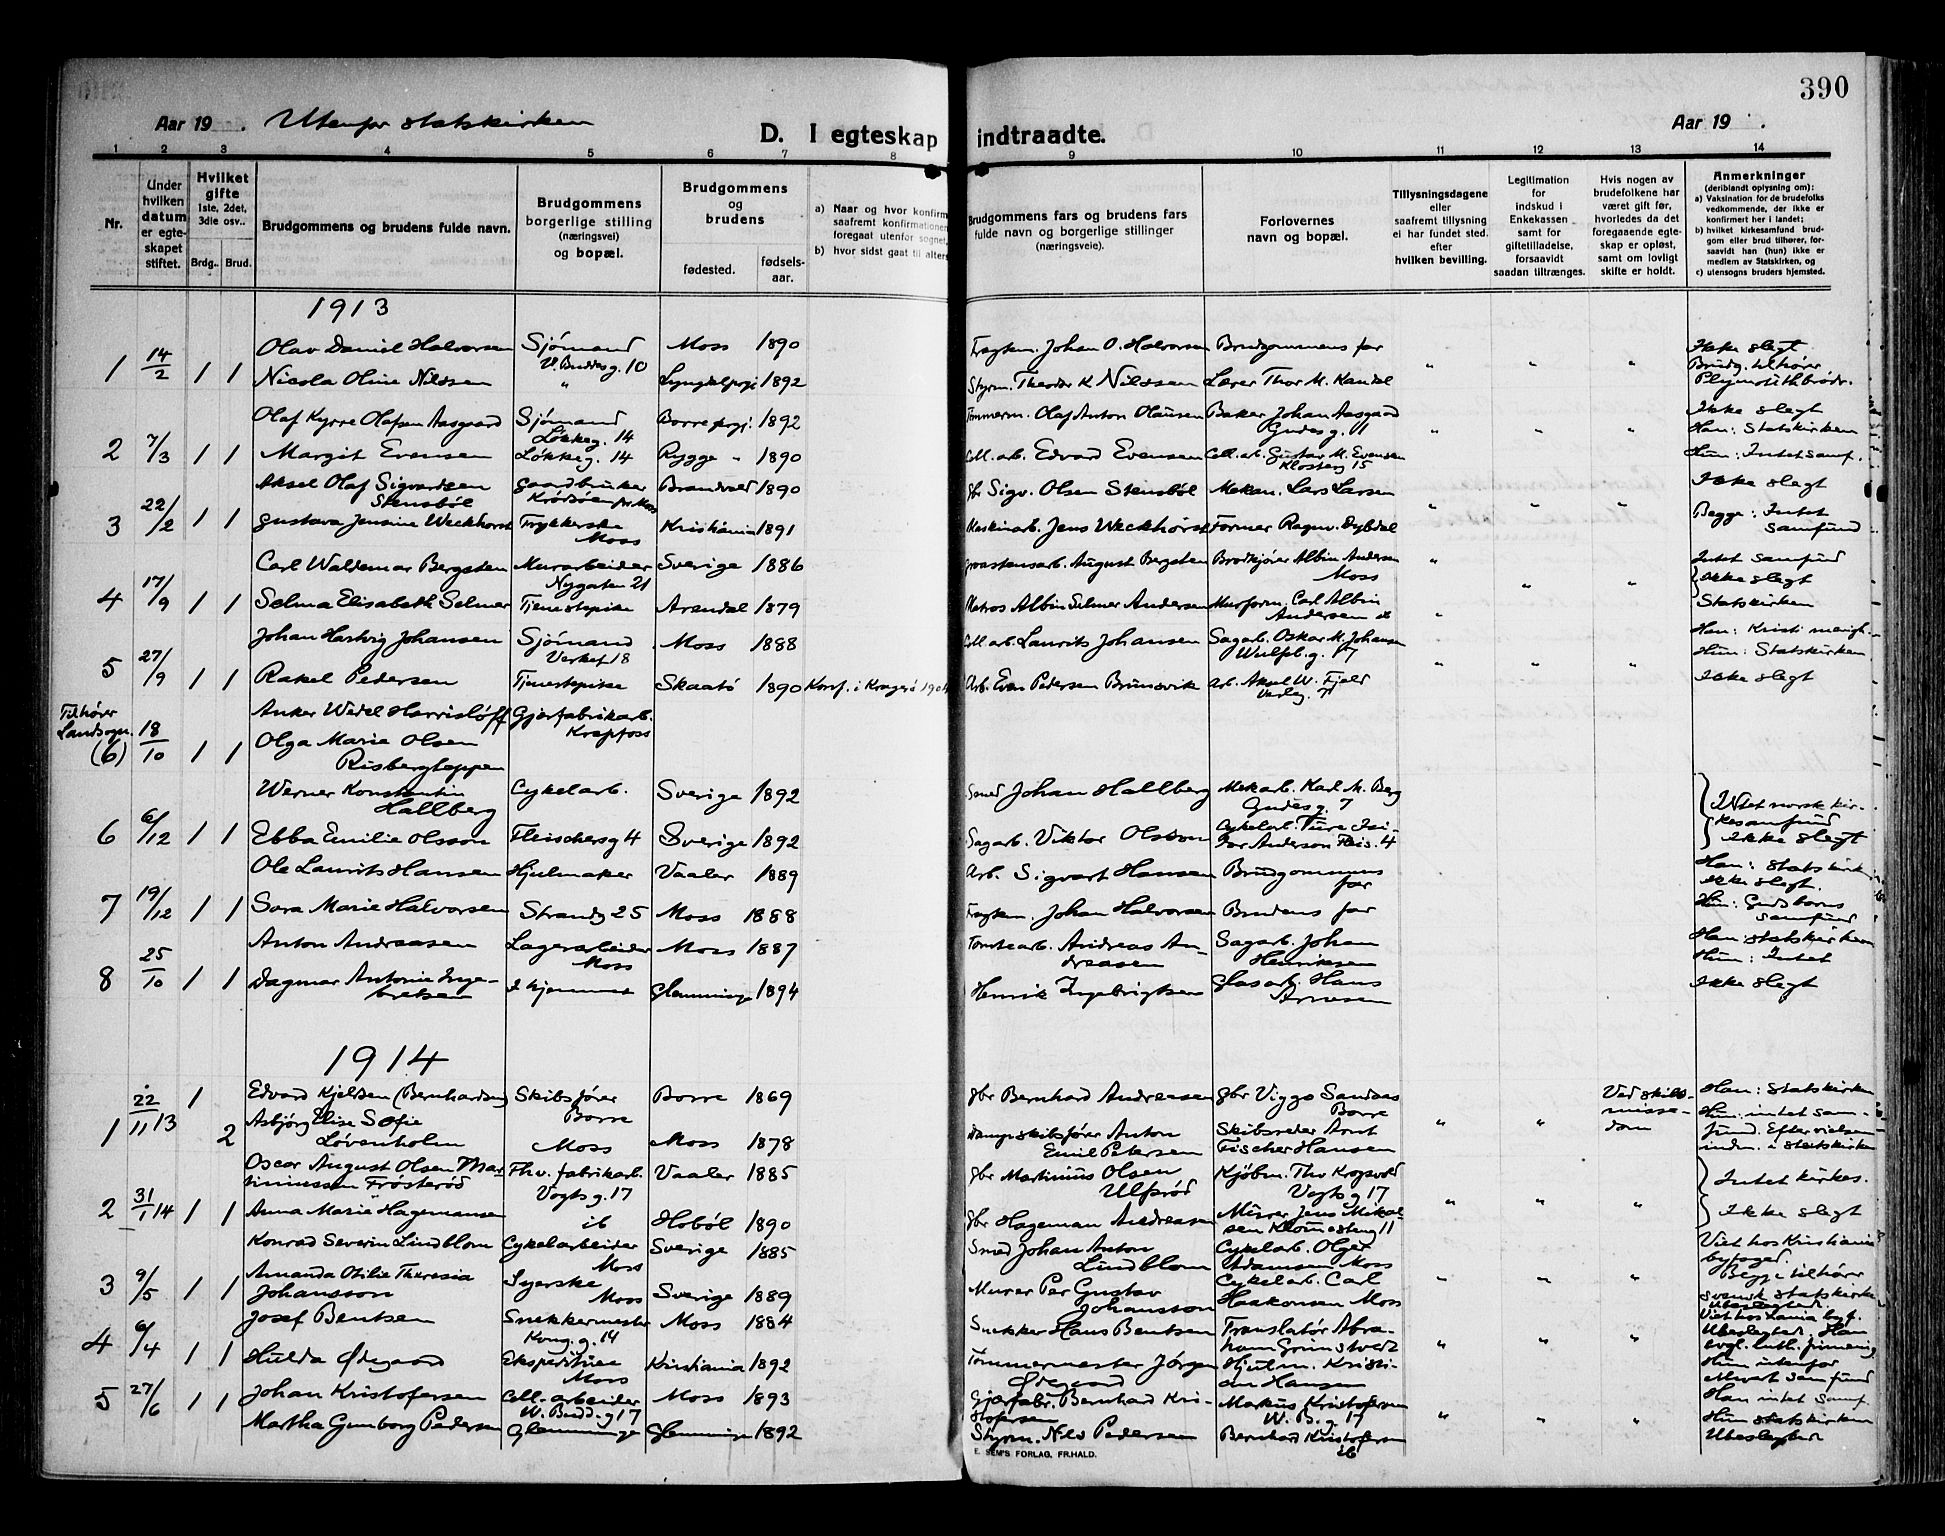 390
Aar 19 . Utenfor statskirken
D. I egteskap indtraadte.
Aar 19 .
1 2 3 4 5 6 7 8 9 10 11 12 13 14
Nr.
Under hvilken datum er egteskapet stiftet.
Hvilket gifte 1ste, 2det, 3die osv..
Brdg.. Brud.
Brudgommens og brudens fulde navn.
Brudgommens borgerlige stilling (næringsvei) og bopæl.
Brudgommens og brudens
fødested.
fødselsaar.
a) Naar og hvor konfirm
saafremt konfirmationen
foregaat utenfor sognet,
b) hvor sidst gaat til alters
Brudgommens fars og brudens fars fulde navn og borgerlige stillinger (næringsveie).
Forlovernes navn og bopæl.
Tillysningsdagene eller saafremt tillysning ei har fundet sted. efter hvilken bevilling.
Legitimation for indskud i Enkekassen samt for giftetilladelse, forsaavidt saadan tiltrænges.
Hvis nogen av brudefolkene har været gift før, hvorledes da det foregaaende egteskap er opløst, samt om lovligt skifte er holdt.
Anmerkninger (deriblandt oplysning om): a) Vaksination for de brudefolks vedkommende, der ikke er konfirmert her i landet; b) hvilket kirkesamfund brudgom eller brud tilhører, forsaavidt han (hun) ikke er medlem av Statskirken, og c) utensogns bruders hjemsted.
1913
Olav Daniel Halvorsen Sjømand Moss 1890 Fragtem. Johan O. Halvorsen Brudgommens far Ikke slegt
1 14/2 1 1 V. Buddesg. 10 " " " Brudg. tilhører
Nicola Oline Nilssen " 1892 Styrm. Theodor K Nilssen Lærer Thor M. Kandal Plymouthbrødr.
Olaf Kyrre Olafsen Aasgaard Sjømand Borre prgj. 1892 Tømmerm. Olaf Anton Olaussen Baker Johan Aasgaard Ikke slegt
Løkkeg. 14 Gudesg. 11 " " " Han: Statskirken
2 7/3 1 1 Margit Evensen Løkkeg. 14 Rygge " 1890 Cell. arb. Edvard Evensen Cell. arb. Gustav M. Evensen Hun: Intet samf.
Klosterg 15
Aksel Olaf Sigvardsen Gaardbruker Brandval 1890 Gbr Sigv. Olsen Stensbøl Mekan. Lars Larsen Ikke slegt
Stensbøl
3 22/2 1 1 Gustava Jensine Weckhorst Trykkerske Kristiania 1891 Maskinarb. Jens Weckhorst Former Ragnv. Dybdal " " " Begge: Intet
Moss samfund
Carl Waldemar Bergsten Murarbeider Sverige 1886 August Bergsten Brødkjører Albin Andersen " Intet samfund
Nygaten 21 Moss Ikke slegt
4 17/9 1 1 Selma Elisabeth Selmer Tjenestepike Arendal 1879 Matros Albin Selmer Andersen Murform. Carl Albin " " " Statskirken
Andersen
Johan Hartvig Johansen Sjømand Moss 1888 Cell. arb. Laurits Johansen Sagarb. Oskar M. Johansen Han: Kristi menigh.
Verket 18 Wulfsb. g. 17 " " " Hun: Statskirken
5 27/9 1 1 Rakel Pedersen Tjenestepike Skaatø 1890 Konf. i Kragerø 190 Arb. Even Pedersen Brunsvik Arb. Aksel W. Fjeld Ikke slegt
Tilhører Landsogn. (6) 18/10 1 1 Anker Wedel Harrisløff Gjærfabrikarb.
Krapfoss
Olga Marie Olsen
Risbergløppen
Werner Konstantin Cykelarb. Sverige 1892 Smed Johan Hallberg Mekarb. Karl M. Berg
Hallberg Gudesg. 7 Intet norsk kir-
kesamfund
6 6/12 1 1 Ebba Emilie Olsson Fleischersg 4 Sverige 1892 Sagarb. Viktor Olsson Cykelarb. Ture Isi-
dor Anderson Fleis. 4 Ikke slegt
Ole Laurits Hansen Hjulmaker Vaaler 1889 Arb. Sigvart Hansen Brudgommens Han: Statskirk.
far Ikke slegt.
7 19/12 1 1 Sara Marie Halvorsen Strandg 25 Moss 1888 Fragtem. Johan Halvorsen Brudens far Hun: Guds barns
samfund
Anton Andreasen Lagerarbeider Moss 1887 Tomtearb. Andreas An- Sagarb. Johan Han: Statskirken
Moss dreassen Henriksen Hun: Intet
8 25/10 1 1 Dagmar Antonie Inge- I hjemmet Glemminge 1894 Henrik Ingebrigtsen Glasarb. Hans Ikke slegt
bretsen Arnesen
1914
Edvard Kjeldsen (Bernhardsen) Skibsfører Borre 1869 Gbr Bernhard Andreasen Gbr Viggo Sandaas Ved skils- Han: Statskirken
Borre Borre misse- Hun: intet sam-
1 22/11 13 1 2 Asbjørg Elise Sofie dom fund. Efter vielsen
Løvenholm Moss Moss 1878 Dampskibsfører Anton Skibsreder Arnt " " indm. i statskirken
Emil Petersen Fischer Hansen
Oscar August Olsen Mar- Fhv. fabrikarb. Vaaler 1885 Gbr Martinius Olsen Kjøbm. Thv Krogsvold Intet kirkes.
tinussen Frøsterød Vogtsg. 17 Ulfsrød Vogtsg 17
2 31/1 14 1 1 Anna Marie Hagemansen ib Hobøl 1890 Gbr Hageman Andreasen Murer Jens Mikal- " " " Ikke slegt
sen
Konrad Severin Lindblom Cykelarbeider Sverige 1885 Smed Johan Anton Cykelarb. Olger Viet hos Kristiania
Moss Lindblom Adamsen Moss byfoged.
3 9/5 1 1 Amanda Otilie Theresia Syerske Cykelarb. Carl " " " Begge tilhører
Johansson Moss Sverige 1889 Murer Per Gustav Haakonsen Moss svensk statskirke
Johansson Ubeslegtede.
Josef Bentsen Snekkermester Moss 1884 Snekker Hans Bentsen Translatør Abra- Viet hos byf.
Kong. g. 14 ham Grimstvedt Ubeslegtede. Han
4 6/4 1 1 Hulda Ødegaard Ekspeditrice Kristiania 1892 Tømmermester Jørgen Hjulm. Kristi- " " " evgl. luth. frimenig.
Moss Ødegaard an Hansen Hun utenfor
ethvert samfund
5 27/6 1 1 Johan Kristofersen Cell. arbeider Moss 1893 Gjærfabr. Bernhard Kri- Markus Kristofersen Han intet samf.
W. Budd. g 17 stofersen W. B. g. 17 " " " Hun statskirken
Martha Gunborg Pedersen Glemminge Glemminge 1892 Styrm. Nils Pedersen Bernhard Kristofersen Ubeslegtet
ib
E. SEM'S FORLAG, FR.HALD.